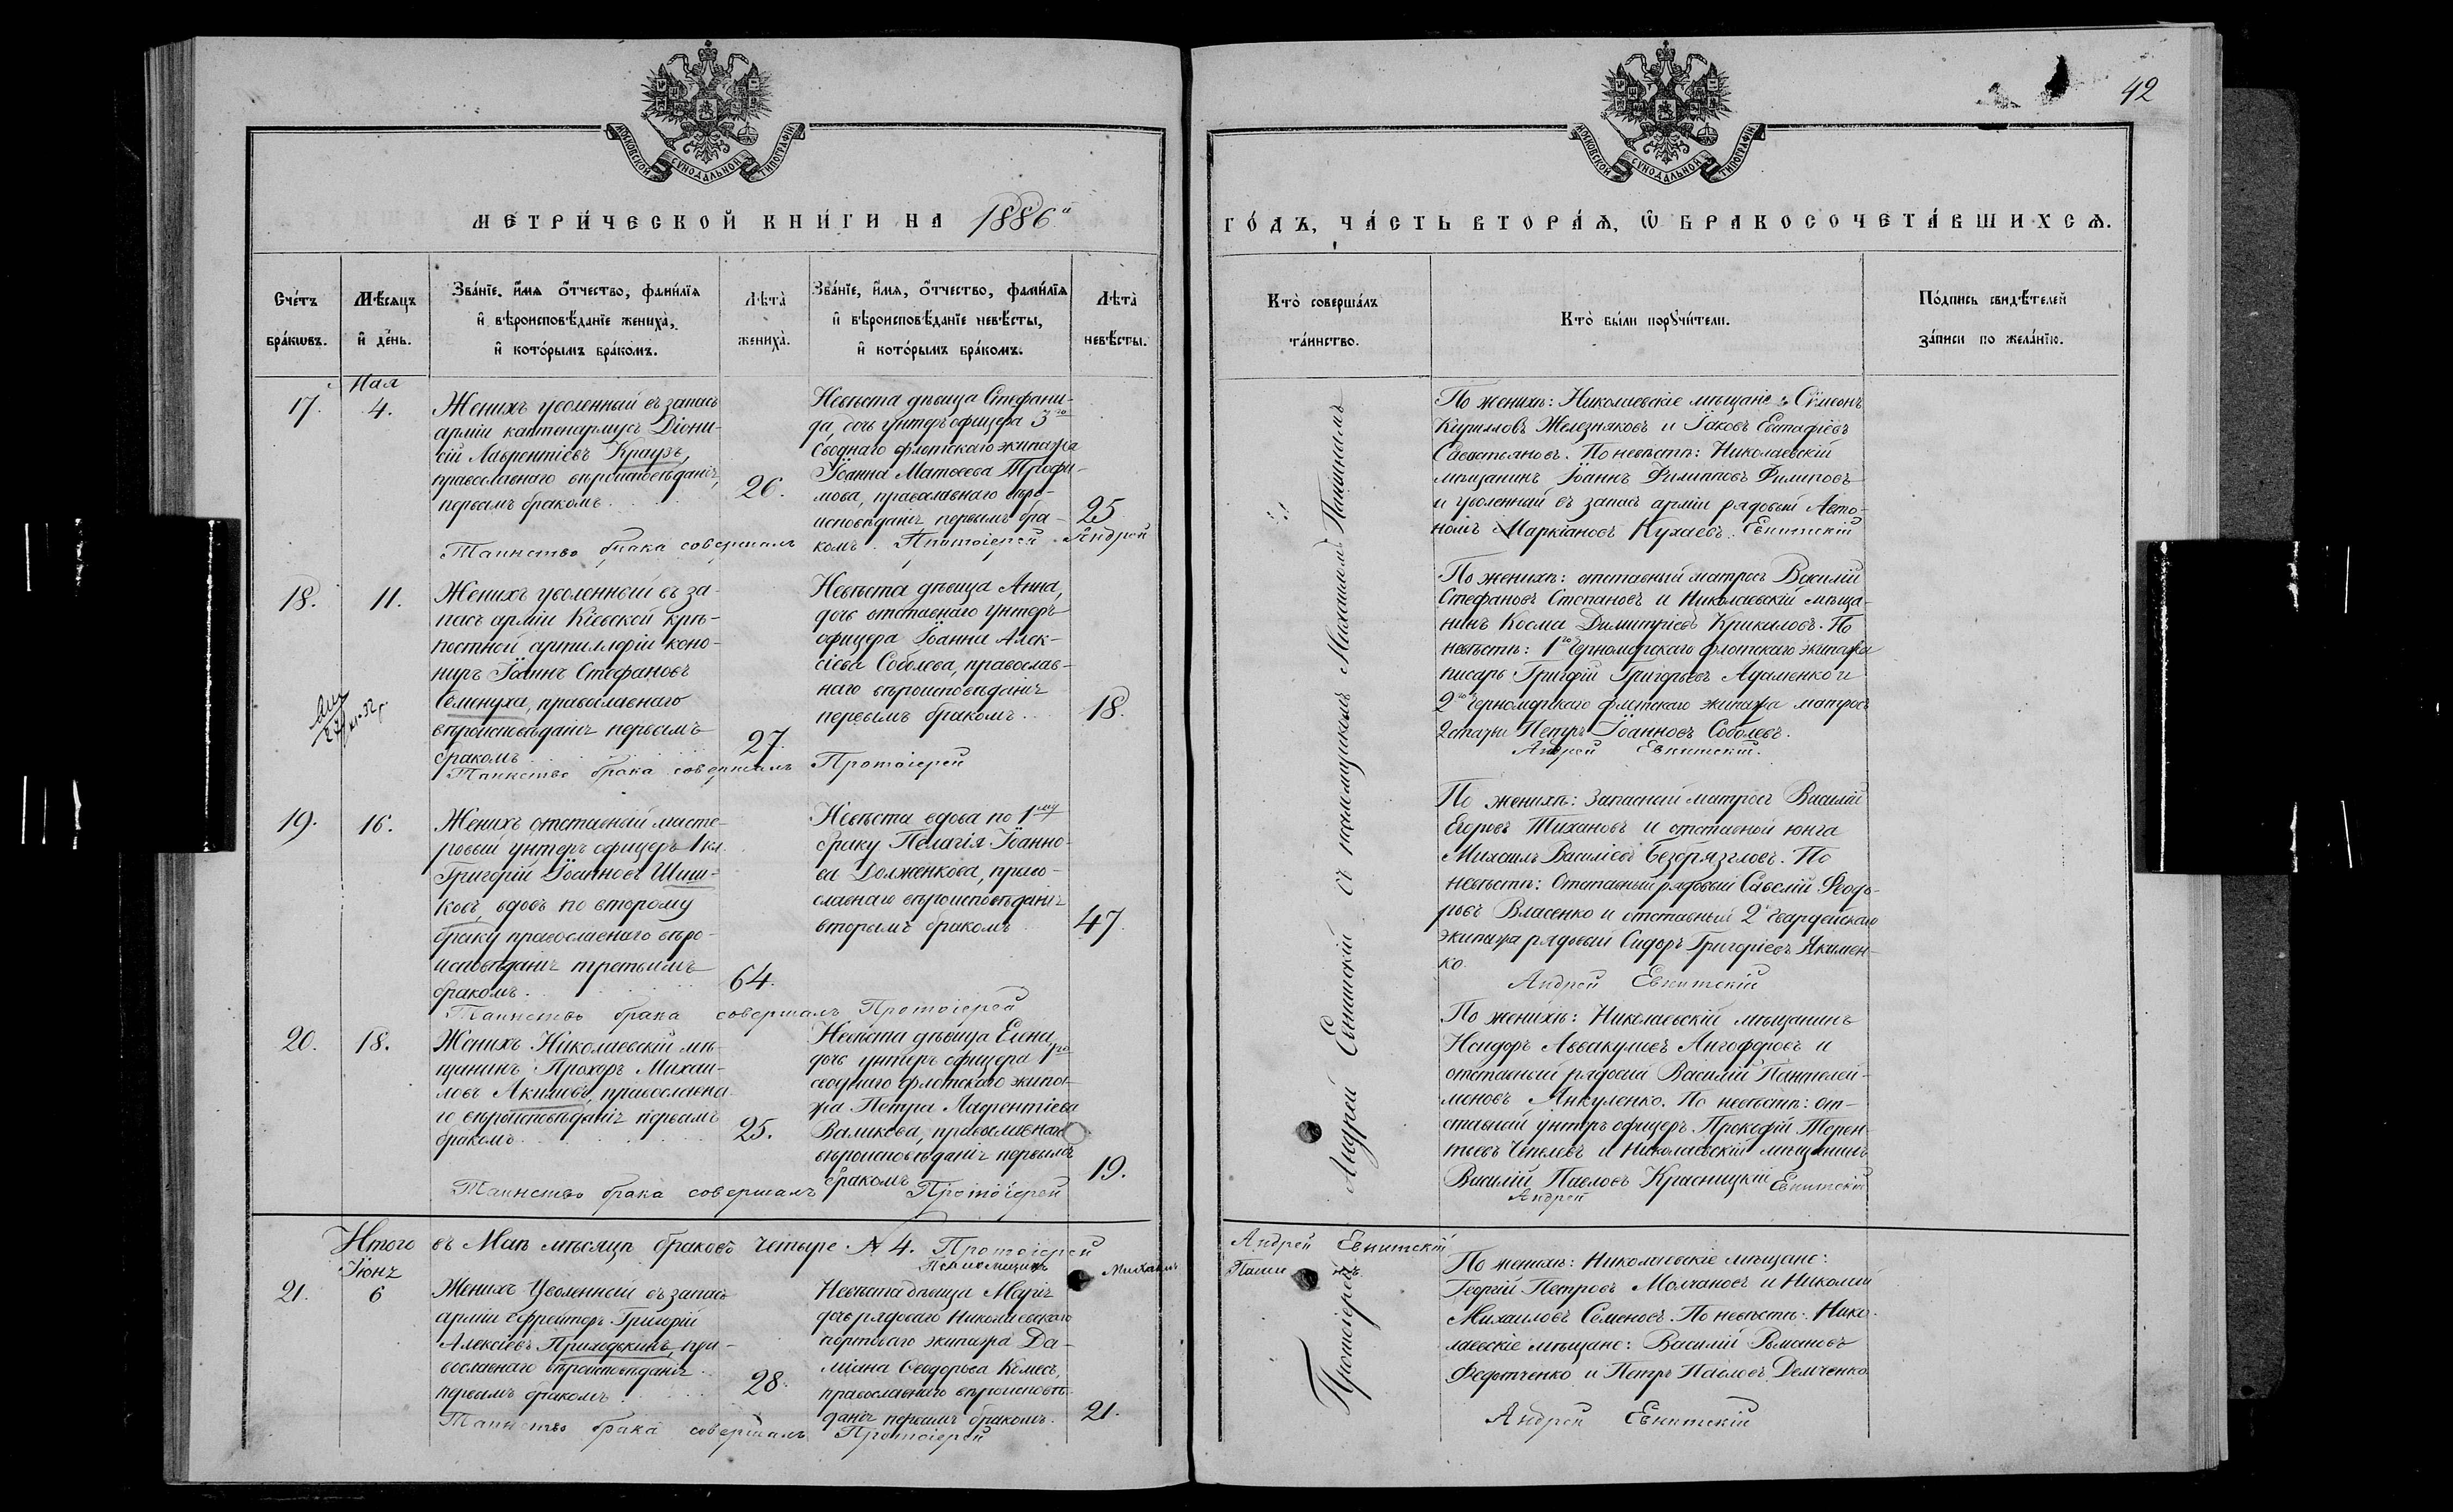 42
МОСКОВСКОЙ СУНОДАЛЬНОЙ ТИПОГРАФІИ
МОСКОВСКОЙ СУНОДАЛЬНОЙ ТИПОГРАФІИ
МЕТРИ́ЧЕСКОЙ КНИ́ГИ НА 1886й
ГО́ДЪ, ЧА́СТЬ ВТОРА́Ѧ, Ѡ҆ БРАКОСОЧЕТА́ВШИХСѦ.
Сче́тъ бра́кѡвъ.
Мѣ́сяцъ и҆ де́нь.
Зва́нїе, и҆́мя, ѻ҆́тчество, фами́лїя
и҆ вѣроисповѣ́данїе жениха̀,
и҆ кото́рымъ бра́комъ.
Лѣта̀ жениха̀.
Зва́нїе, и҆́мя, ѻ҆́тчество, фами́лїя
и҆ вѣроисповѣ́данїе невѣ́сты,
и҆ кото́рымъ бра́комъ.
Лѣта̀ невѣ́сты.
Кто̀ соверша́лъ та́инство.
Кто̀ бы́ли порꙋчи́тели.
По́дпись свидѣ́телей за́писи по жела́нїю.
Мая
17.
4.
Женихъ уволенный въ запасъ
арміи каптенармусъ Діони-
сій Лаврентіевъ Краузъ,
православнаго вѣроисповѣданія,
первымъ бракомъ.
26.
Невѣста дѣвица Стефани-
да, дочь унтеръ офицера 3го
Своднаго флотскаго экипажа
Іоанна Матвеева Трофи-
мова, православнаго вѣро-
исповѣданія, первымъ бра-
комъ.
25
Таинство брака совершалъ Протоіерей Андрей
По женихѣ: Николаевскіе мѣщане Сѵмеонъ
Кирилловъ Железняковъ и Іаковъ Евстафіевъ
Савостьяновъ. По невѣстѣ: Николаевскій
мѣщанинъ Іоаннъ Филипповъ Филиповъ
и уволенный въ запасъ арміи рядовый Авто-
номъ Маркіановъ Кухаевъ. Евнитскій
18.
11.
Женихъ уволенный въ за-
пасъ арміи Кіевской крѣ-
постной артиллеріи коно-
ниръ Іоаннъ Стефановъ
Семенуха, православнаго
вѣроисповѣданія первымъ
бракомъ
27.
Невѣста дѣвица Анна,
дочь отставнаго унтеръ
офицера Іоанна Алек-
сіева Соболева, православ-
наго вѣроисповѣданія
первымъ бракомъ
18.
Таинство брака совершалъ Протоіерей
По женихѣ: отставный матросъ Василій
Стефановъ Степановъ и Николаевскій мѣща-
нинъ Косма Димитріевъ Крикаловъ. По
невѣстѣ: 1го Черноморскаго флотскаго экипажа
писарь Григорій Григорьевъ Адаменко и
2го Черноморскаго флотскаго экипажа матросъ
2 статьи Петръ Іоанновъ Соболевъ.
Андрей Евнитскій.
19.
16.
Женихъ отставный масте-
ровый унтеръ офицеръ 1 кл.
Григорій Іоанновъ Шиш-
ковъ, вдовъ по второму
браку православнаго вѣро-
исповѣданія третьимъ
бракомъ.
64.
Невѣста вдова по 1му
браку Пелагія Іоанно-
ва Долженкова, право-
славнаго вѣроисповѣданія
вторымъ бракомъ
47.
Таинство брака совершалъ Протоіерей
По женихѣ: Запасный матросъ Василій
Егоровъ Тихановъ и отставной юнга
Михаилъ Василіевъ. По
невѣстѣ: Отставный рядовый Савелій Ѳеодо-
ровъ Власенко и отставный 2 гвардейскаго
экипажа рядовый Сидоръ Григоріевъ Якимен-
ко.
Андрей Евнитскій
20.
18.
Женихъ Николаевскій мѣ-
щанинъ Прохоръ Михаи-
ловъ Акимовъ, православна-
го вѣроисповѣданія первымъ
бракомъ
25.
Невѣста дѣвица Елена,
дочь унтеръ офицера 1го
своднаго флотскаго экипа-
жа Петра Лаврентіева
Валикова, православнаго
вѣроисповѣданія первымъ
бракомъ
19.
Таинство брака совершалъ Протоіерей
По женихѣ: Николаевскій мѣщанинъ
Исидоръ Аввакумовъ и
отставный рядовый Василій Пантелей-
моновъ Анкуленко. По невѣстѣ: от-
ставный унтеръ офицеръ Прокофій Терен-
тьевъ и Николаевскій мѣщанинъ
Василій Павловъ Красницкій Евнитскій
Андрей
Итого въ Маѣ мѣсяцѣ браковъ четыре № 4. Протоіерей Андрей Евнитскій
Псаломщикъ Михаилъ
Іюнь
21.
6
Женихъ Уволенный въ запасъ
арміи ефрейторъ Григорій
Алексіевъ Приходькинъ, пра-
вославнаго вѣроисповѣданія
первымъ бракомъ
28.
Невѣста дѣвица Марія
дочь рядоваго Николаевскаго
портоваго экипажа Да-
міана Ѳеодорова Комесъ,
православнаго вѣроисповѣ-
данія первымъ бракомъ.
21.
Таинство брака совершалъ Протоіерей
По женихѣ: Николаевскіе мѣщане:
Георгій Петровъ Молчановъ и Николай
Михаиловъ Семеновъ. По невѣстѣ: Нико-
лаевскіе мѣщане: Василій Романовъ
Федотченко и Петръ Павловъ Демченко
Андрей Евнитскій
Протоіерей Андрей Евнитскій съ псаломщикомъ Михаиломъ